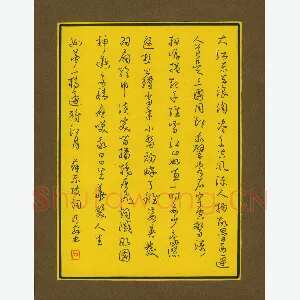 大江东去浪淘尽千古风流人物故垒西边
人道是三国周郎赤壁乱石穿空惊涛
拍岸卷起千堆雪江山如画一时多少豪杰
遥想公瑾当年小乔初嫁了雄姿英发
羽扇纶巾谈笑间樯橹灰飞烟灭故国
神游多情应笑我早生华发人生
如梦一尊还酹江月 苏东坡词 书